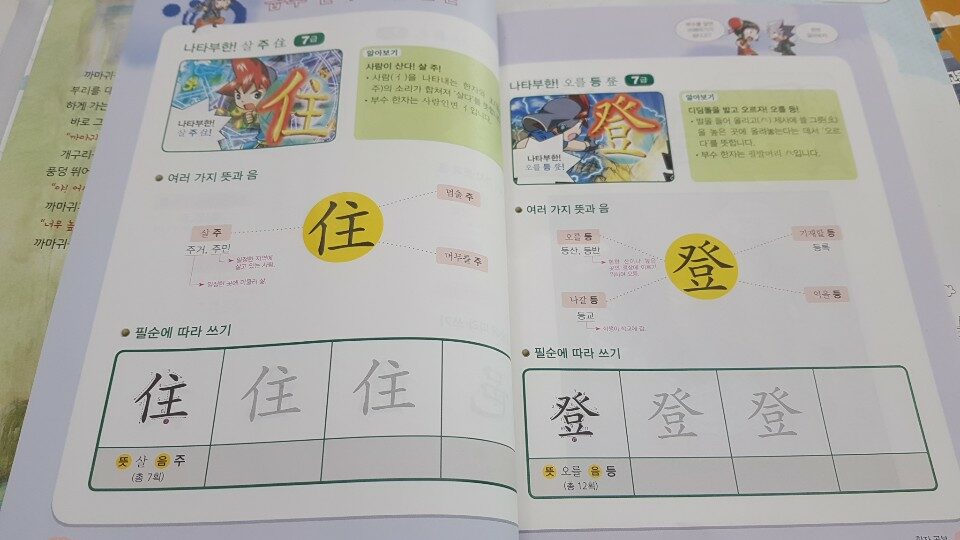 까마귀
뿌리를
하게 가는
바로 그
"까마귀
개구리
풍덩 뛰어
까마귀
"너무
까마귀
나타부한! 살 주 住 7급
나타부한!
살 주 住!
住
알아보기
사람이 산다! 살 주!
• 사람(亻)을 나타내는 한자와
주)의 소리가 합쳐져 '살다'를
• 부수 한자는 사람인변 亻입니다.
여러 가지 뜻과 음
住
살 주
주거, 주민
일정한 지역에
살고 있는 사람.
일정한 곳에 머물러 삶.
머무를 주
필순에 따라 쓰기
住 住 住
뜻 살 음 주
(총 7획)
나타부한! 오를 등 登 7급
나타부한!
오를 등 登!
登
알아보기
디딤돌을 밟고 오르자! 오를 등!
• 발을 들어 올리고(癶) 제사에 쓸 그릇(豆)
을 높은 곳에 올려놓는다는 데서 '오르
다'를 뜻합니다.
• 부수 한자는 필발머리 癶입니다.
여러 가지 뜻과 음
登
오를 등
등산, 등반
기재할 등
등록
나갈 등
등교
이룰 등
필순에 따라 쓰기
登 登 登
뜻 오를 음 등
(총 12획)